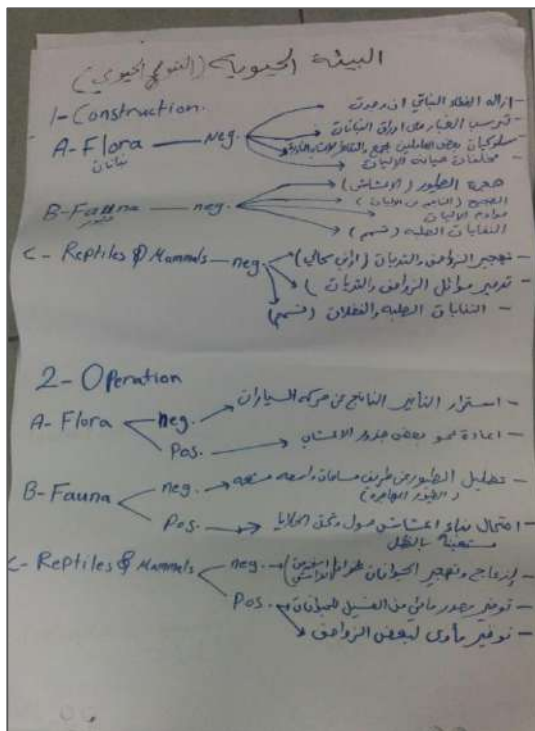 البيئة الحيوية (التنوع الحيوي)
1- Construction.
A- Flora — Neg.
نباتات
- ازالة الغطاء النباتي ان وجدت
- ترسب الغبار على اوراق النباتات
- سلوكيات بعض العاملين بجمع والتقاط
- مخلفات صيانة الاليات
B- Fauna — neg.
طيور
هجرة الطيور (الاعشاش)
الضجيج (الناتج عن الاليات)
حوادث الاليات
النفايات الصلبة (تسمم)
C- Reptiles & Mammals — neg.
- تهجير الزواحف والثدييات
- تدمير موائل الزواحف والثديات
- النفايات الصلبة والفضلات (تسمم)
2- Operation
A- Flora neg. - استمرار التأثير الناتج عن حركة السيارات
Pos. - اعادة نمو بعض جذور الاعشاب
B- Fauna neg. - تضليل الطيور عن طريق مساحات واسعة
(الطيور المهاجرة)
Pos. - احتمال بناء اعشاش حول وتحت الخلايا
مستعينة بالظل
C- Reptiles & Mammals neg. - إزعاج وتهجير الحيوانات
Pos. - توفير مصدر مائي من الغسيل للحيوانات
- توفير مأوى لبعض الزواحف